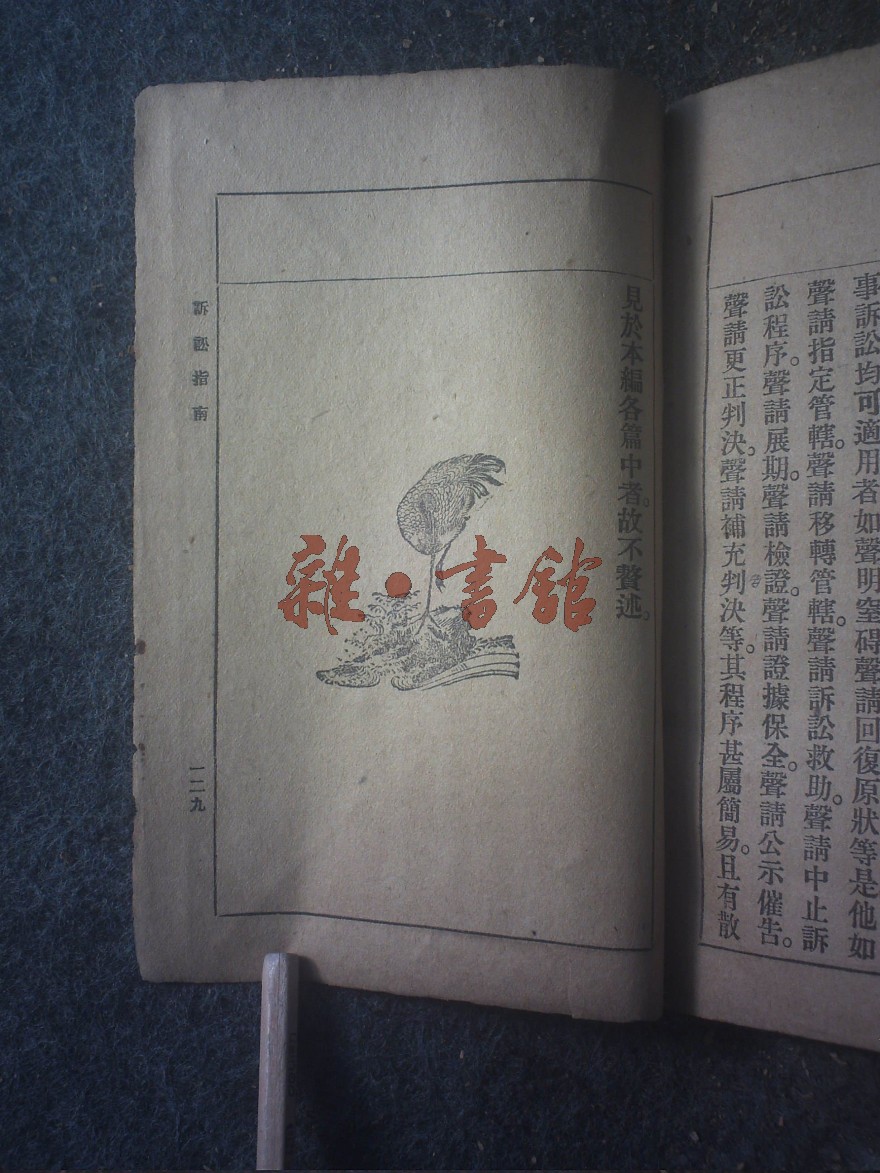 事訴訟均可適用者如聲明窒碍聲請回復原狀等是他如
聲請指定管轄。聲請移轉管轄。聲請訴訟救助。聲請中止訴
訟程序。聲請展期。聲請檢證。聲請證據保全。聲請公示催告。
聲請更正判決。聲請補充判決等。其程序甚屬簡易。且有散
見於本編各篇中者。故不贅述。
訴訟指南
一二九
雜·書館